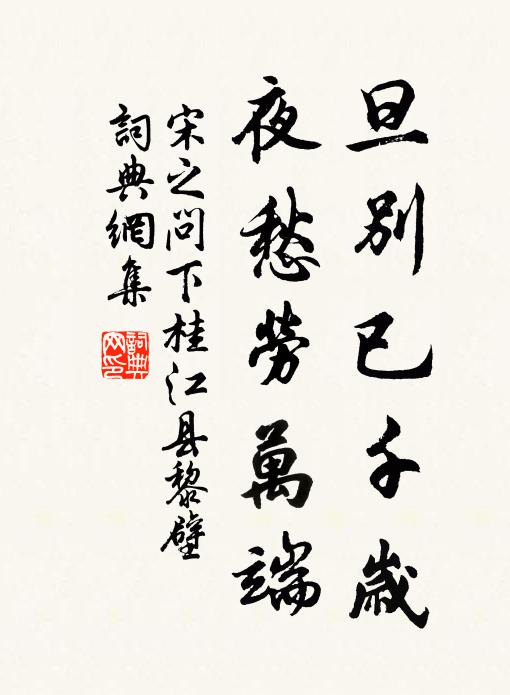 旦別已千歲
夜愁勞萬端
宋之问下桂江县黎壁
詞典網集
詞典網印